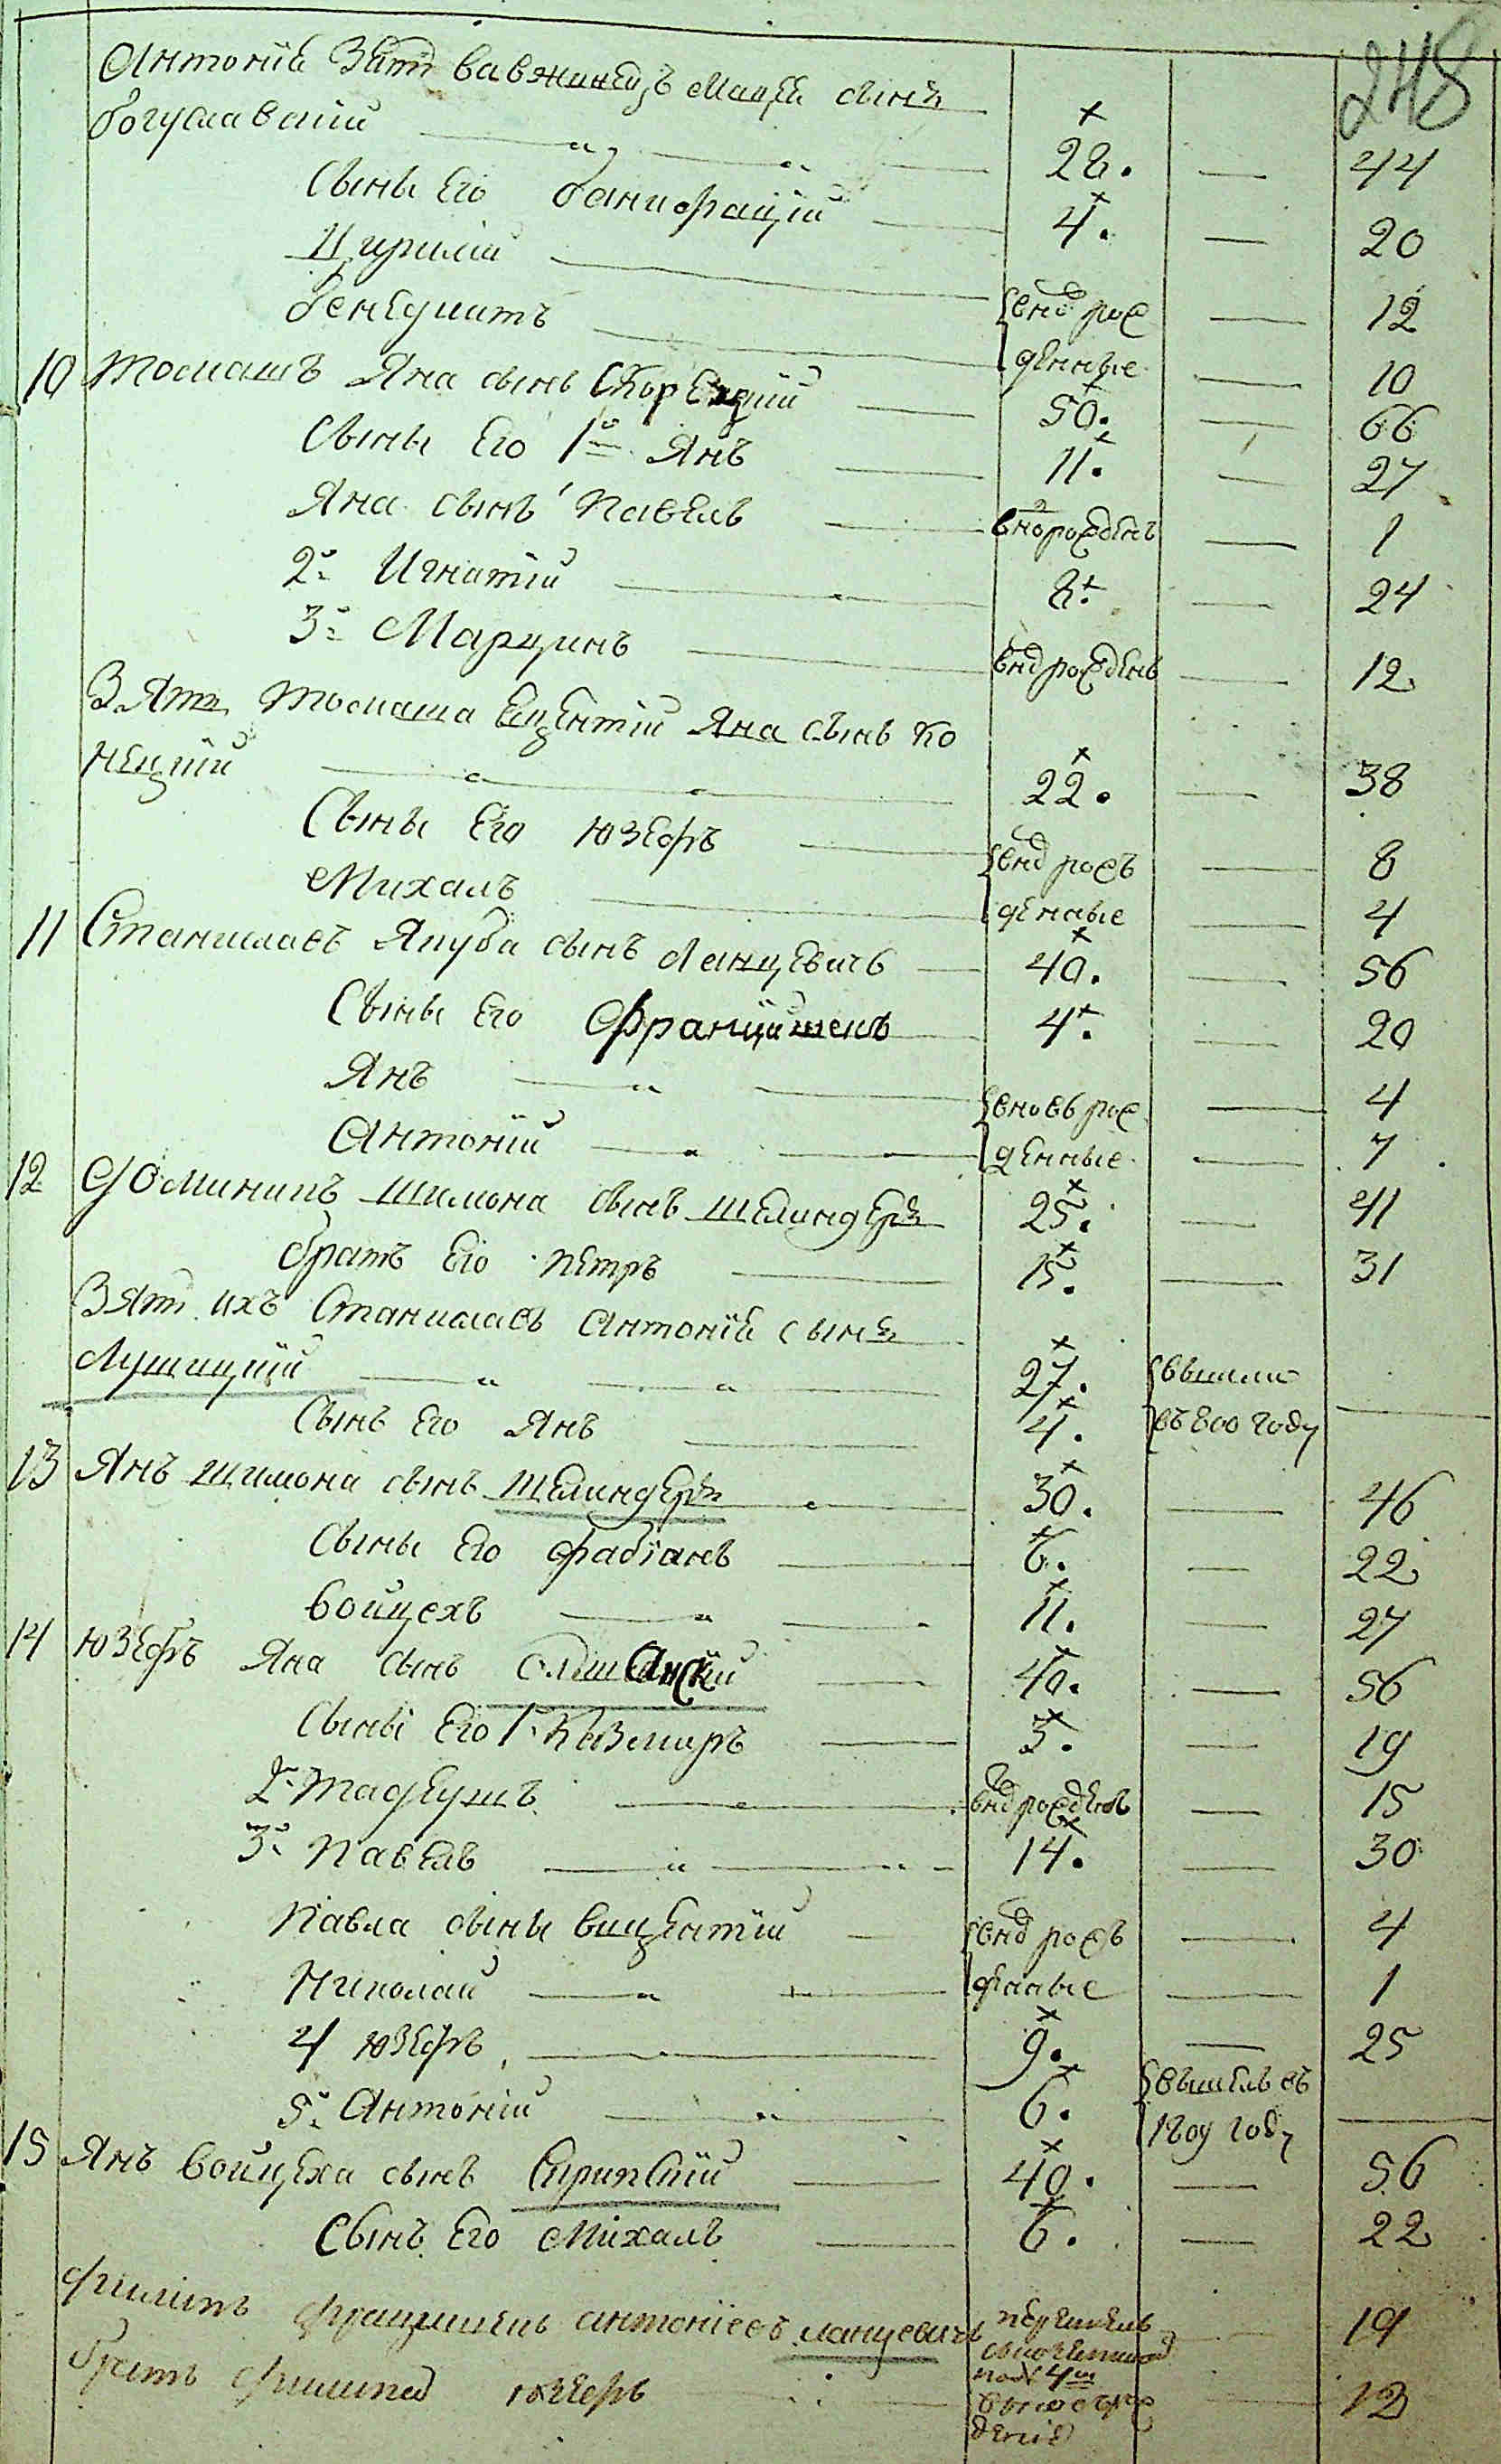 248
Антоній Зять вавжинецъ Мацея сынъ
богуславскій 28. — 44
Сыны Его банифацій 4. — 20
Цирилій {внов рож — 12
бенедиктъ денные — 10
10 Томашъ Яна сынъ Скоре 50. — 66
Сыны Его 1й Янъ 11. — 27
Яна сынъ Павелъ вновь рожденъ — 1
2й Игнатій 8. — 24
3й Марцинъ внов рожденъ — 12
Зять Томаша вицентій Яна сынъ ко
нецкій 22. — 38
Сыны Его Юзефъ {внов рож — 8
Михалъ денные — 4
11 Станиславъ Якуба сынъ Ланцевичъ — 40. — 56
Сыны Его Францишекъ 4. — 20
Янъ {вновь рож — 4
Антоній денные — 7
12 Доминикъ Шимона сынъ Шелиндеръ 25. — 41
братъ Его Петръ 15. — 31
Зять ихъ Станиславъ Антонія сынъ
27. {вышли
Сынъ Его Янъ 4. въ 800 году —
13 Янъ Шимона сынъ Шелиндеръ 30. — 46
Сыны Его Фабіанъ 6. — 22
Войцехъ 11. — 27
14 Юзефъ Яна сынъ 40. — 56
Сыны Его 1й Казмиръ 3. — 19
2й Тадеушъ внов рожденъ — 15
3й Павелъ 14. — 30
Павла сыны вицентій {внов рож — 4
Николай денные — 1
4 Юзефъ 9. — 25
5й Антоній 6. {вышелъ въ
1809 году —
15 Янъ Войцеха сынъ Скрипскій 40. — 56
Сынъ Его Михалъ 6. — 22
Филипъ Францишекъ Антоніевъ Ланцевичъ — 19
братъ Филипа Юзефъ — 12